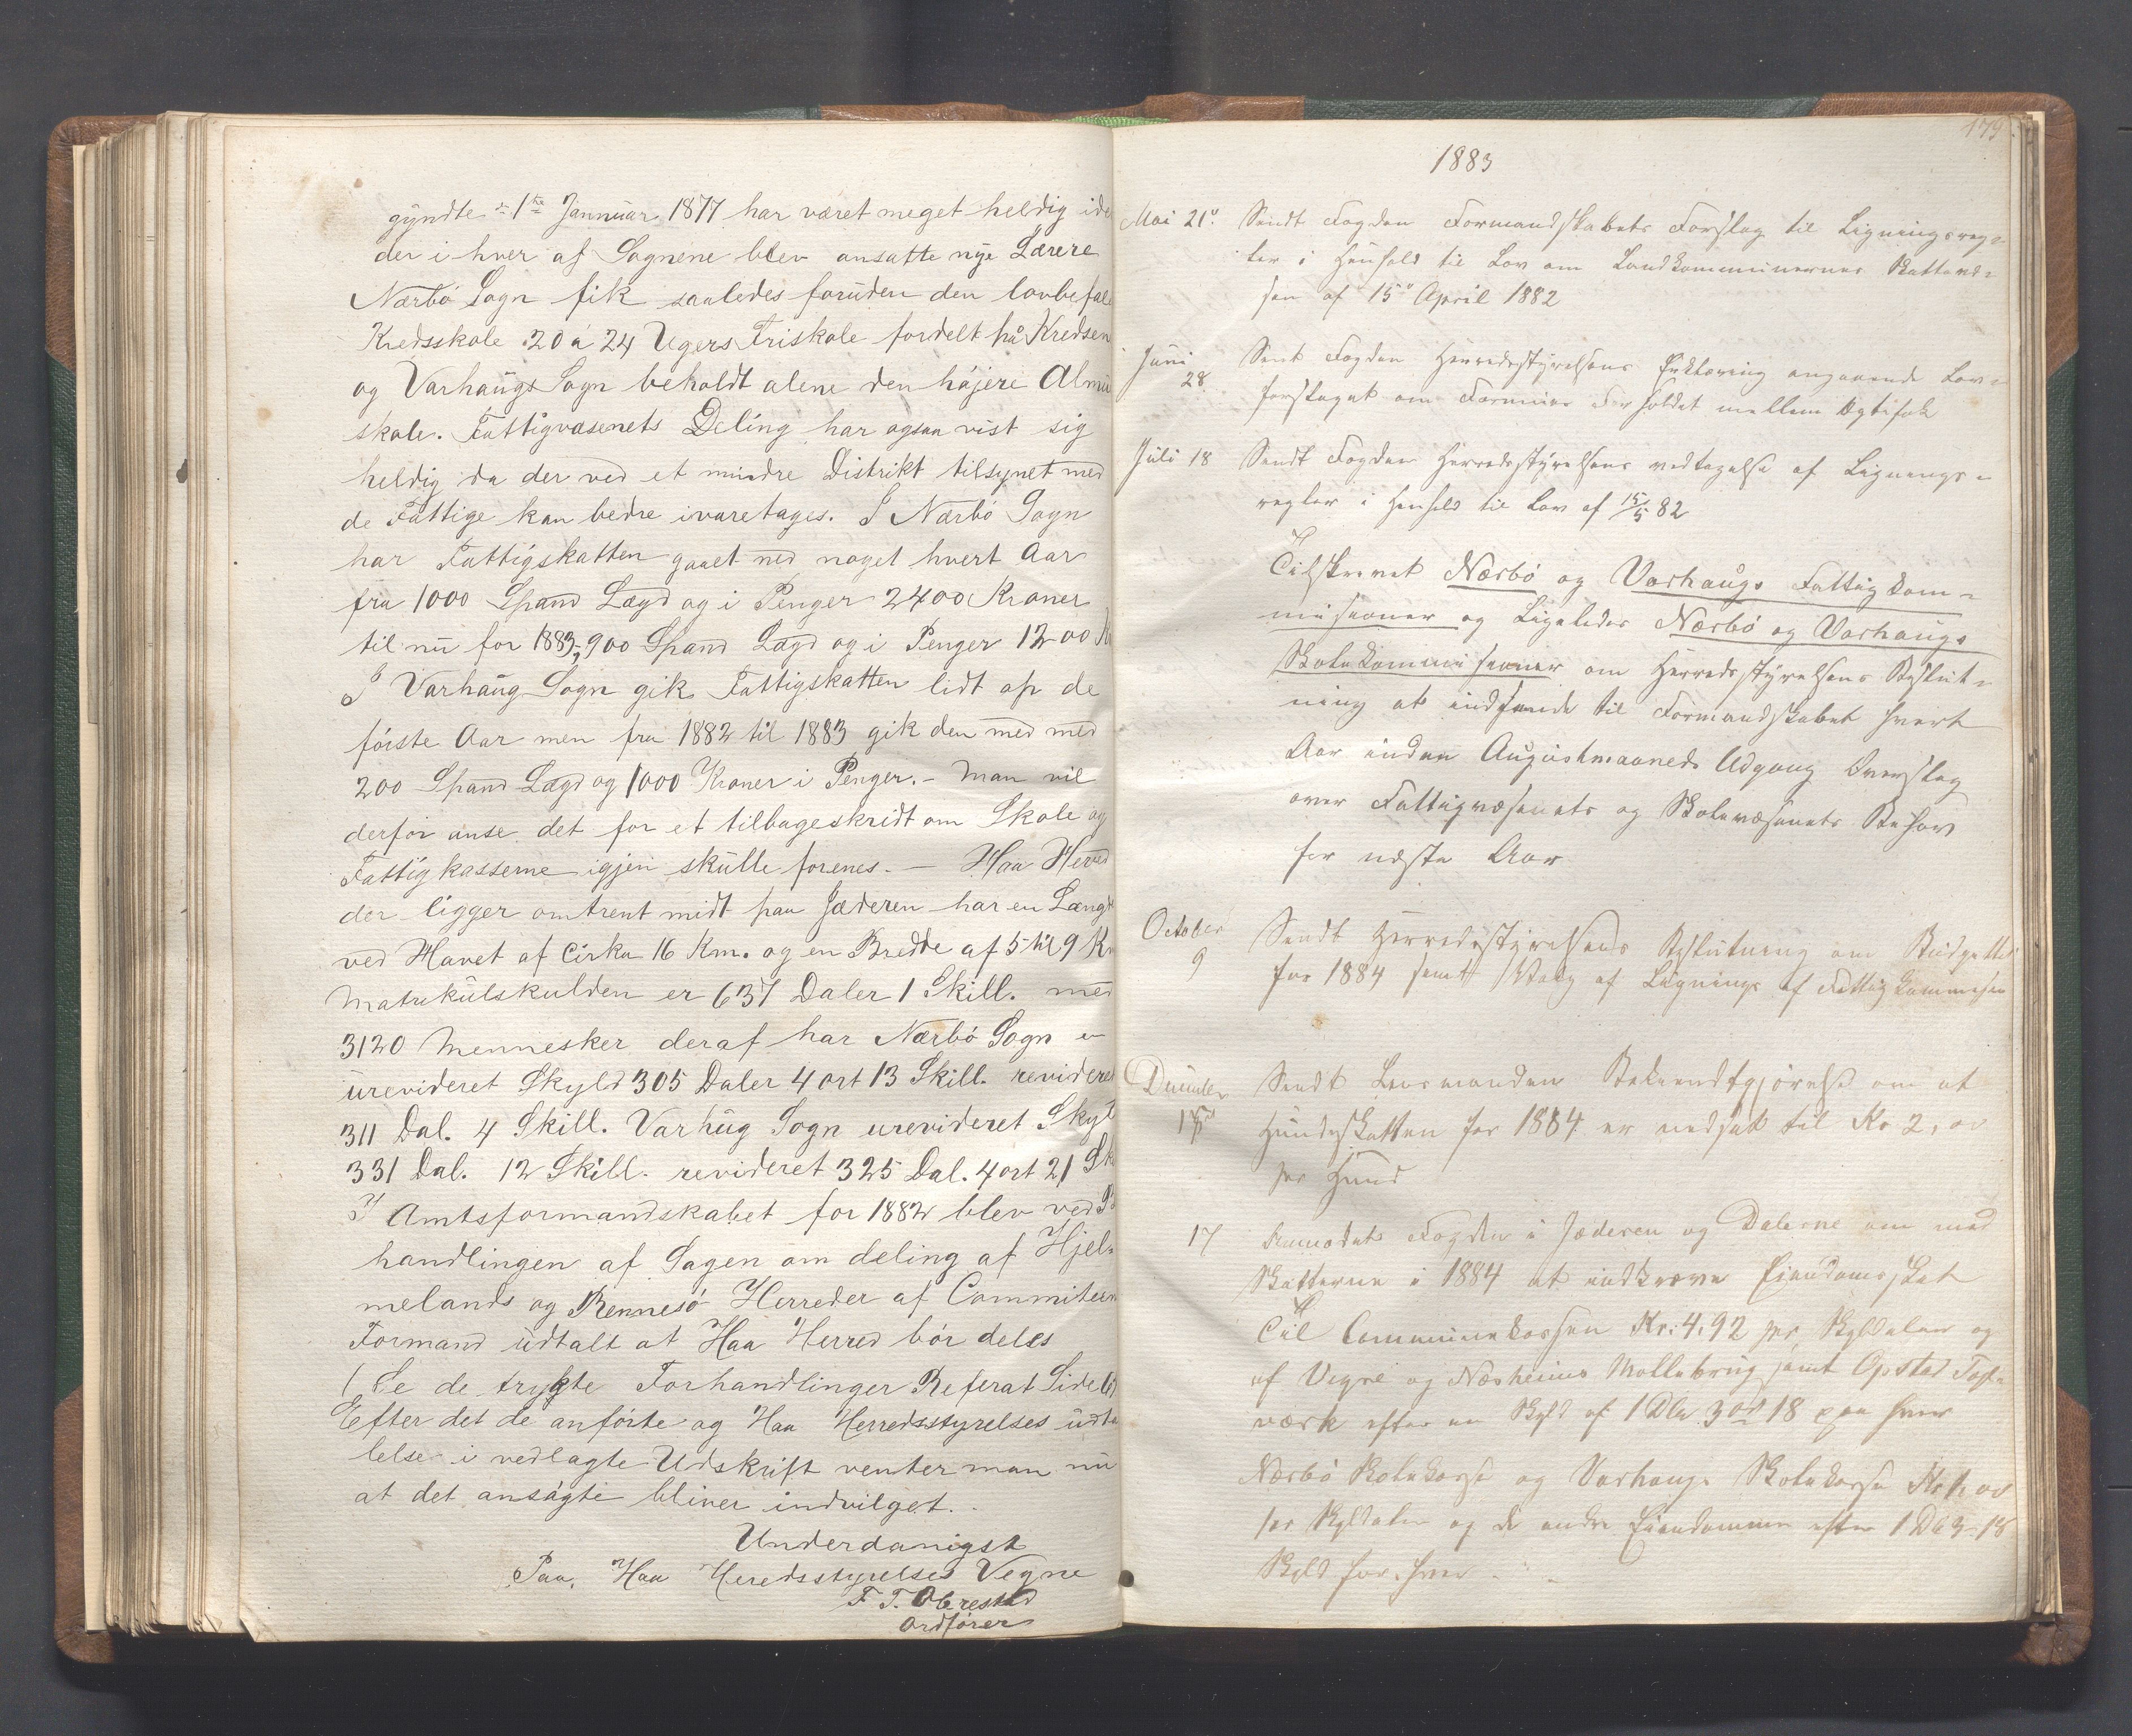 gyndte d. 1ste Jannuar 1877 har været meget heldig ide
der i hver af Sognene blev ansatte nye Lærere
Nærbö Sogn fik saaledes foruden den lovbefal
Kredsskole 20 à 24 Ugers Friskole fordelt på Kredsen
og Varhaugs Sogn beholdt alene den højere Almu
skole. Fattigvæsenets Deling har ogsaa vist sig
heldig da der ved et mindre Distrikt tilsynet med
de Fattige kan bedre ivaretages. I Nærbö Sogn
har Fattigskatten gaaet ned noget hvert Aar
fra 1000 Spand Lægd og i Penger 2400 Kroner
til nu for 1883, 900 Spand Lægd og i Penger 1200 K
I Varhaug Sogn gik Fattigskatten lidt op de
förste Aar men fra 1882 til 1883 gik den ned med
200 Spand Lægd og 1000 Kroner i Penger. – Man vil
derfor anse det for et tilbageskridt om Skole og
Fattigkasserne igjen skulle forenes. — Haa Herred
der ligger omtrent midt paa Jæderen har en Længde
ved Havet af cirka 16 Km. og en Bredde af 5 til 9 Km
Matrikulskulden er 637 Daler 1 Skill. med
3120 Mennesker deraf har Nærbö Sogn en
urevideret Skyld 305 Daler 4 ort 13 Skill. revideret
311 Dal. 4 Skill. Varhug Sogn urevideret Skyl
331 Dal. 12 Skill. revideret 325 Dal. 4 ort 21 Sk
I Amtsformandskabet for 1882 blev ved B
handlingen af Sagen om deling af Hjel-
melands og Rennesö Herreder af Commiteen
Formand udtalt at Haa Herred bör deles
(Se de trygte Forhandlinger Referat Side
Efter det de anförte og Haa Herredsstyrelses udta
lelse i vedlagte Udskrift venter man nu
at det ansögte bliver indvilget.
Underdanigst
Paa Haa Heredsstyrelses Vegne
F. T. Obrestad
Ordförer
179
1883
Mai 21. Sendt Fogden Formandskabets Forslag til Ligningsreg-
ler i Henhold til Lov om Landkommunernes Skattevæ-
sen af 15 April 1882
Juni 28 Sent Fogden Herredsstyrelsens Erklæring angaaende Lov-
forslaget om Formues Forholdet mellem Ægtefolk
Juli 18 Sendt Fogden Herredsstyrelsens vedtagelse af Lignings-
regler i Henhold til Lov af 15/5 82
Tilskrevet Nærbö og Varhaugs Fattigkom-
misioner og Ligeledes Nærbö og Varhaugs
Skolekommisioner om Herredsstyrelsens Beslut-
ning at indsende til Formandskabet hvert
Aar inden Augustmaaneds Udgang Overslag
over Fattigvæsenets og Skolevæsenets Behov
for næste Aar
October 9 Sendt Herredsstyrelsens Beslutning om Budgettet
for 1884 samt Valg af Lignings og Fattigkommision
December Sendt Lensmanden Bekjendtgjörelse om at
Hundeskatten for 1884 er nedsat til Kr 2,00
per Hund
17 Anmodet Fogden i Jæderen og Dalerne om med
Skatterne i 1884 at indkræve Eiendomsskat
Til Communekassen Kr: 4,92 per Skylddaler og
af Vigre og Næsheims Mollebrug samt Opstad Tøf-
værk efter en Skyld af 1 Dlr 3 ort 18 s paa hver
Nærbö Skolekasse og Varhaugs Skolekasse Kr 1,00
per Skylddaler og de andre Eiendomme efter 1 Dl 3 - 18
Skyld for hver